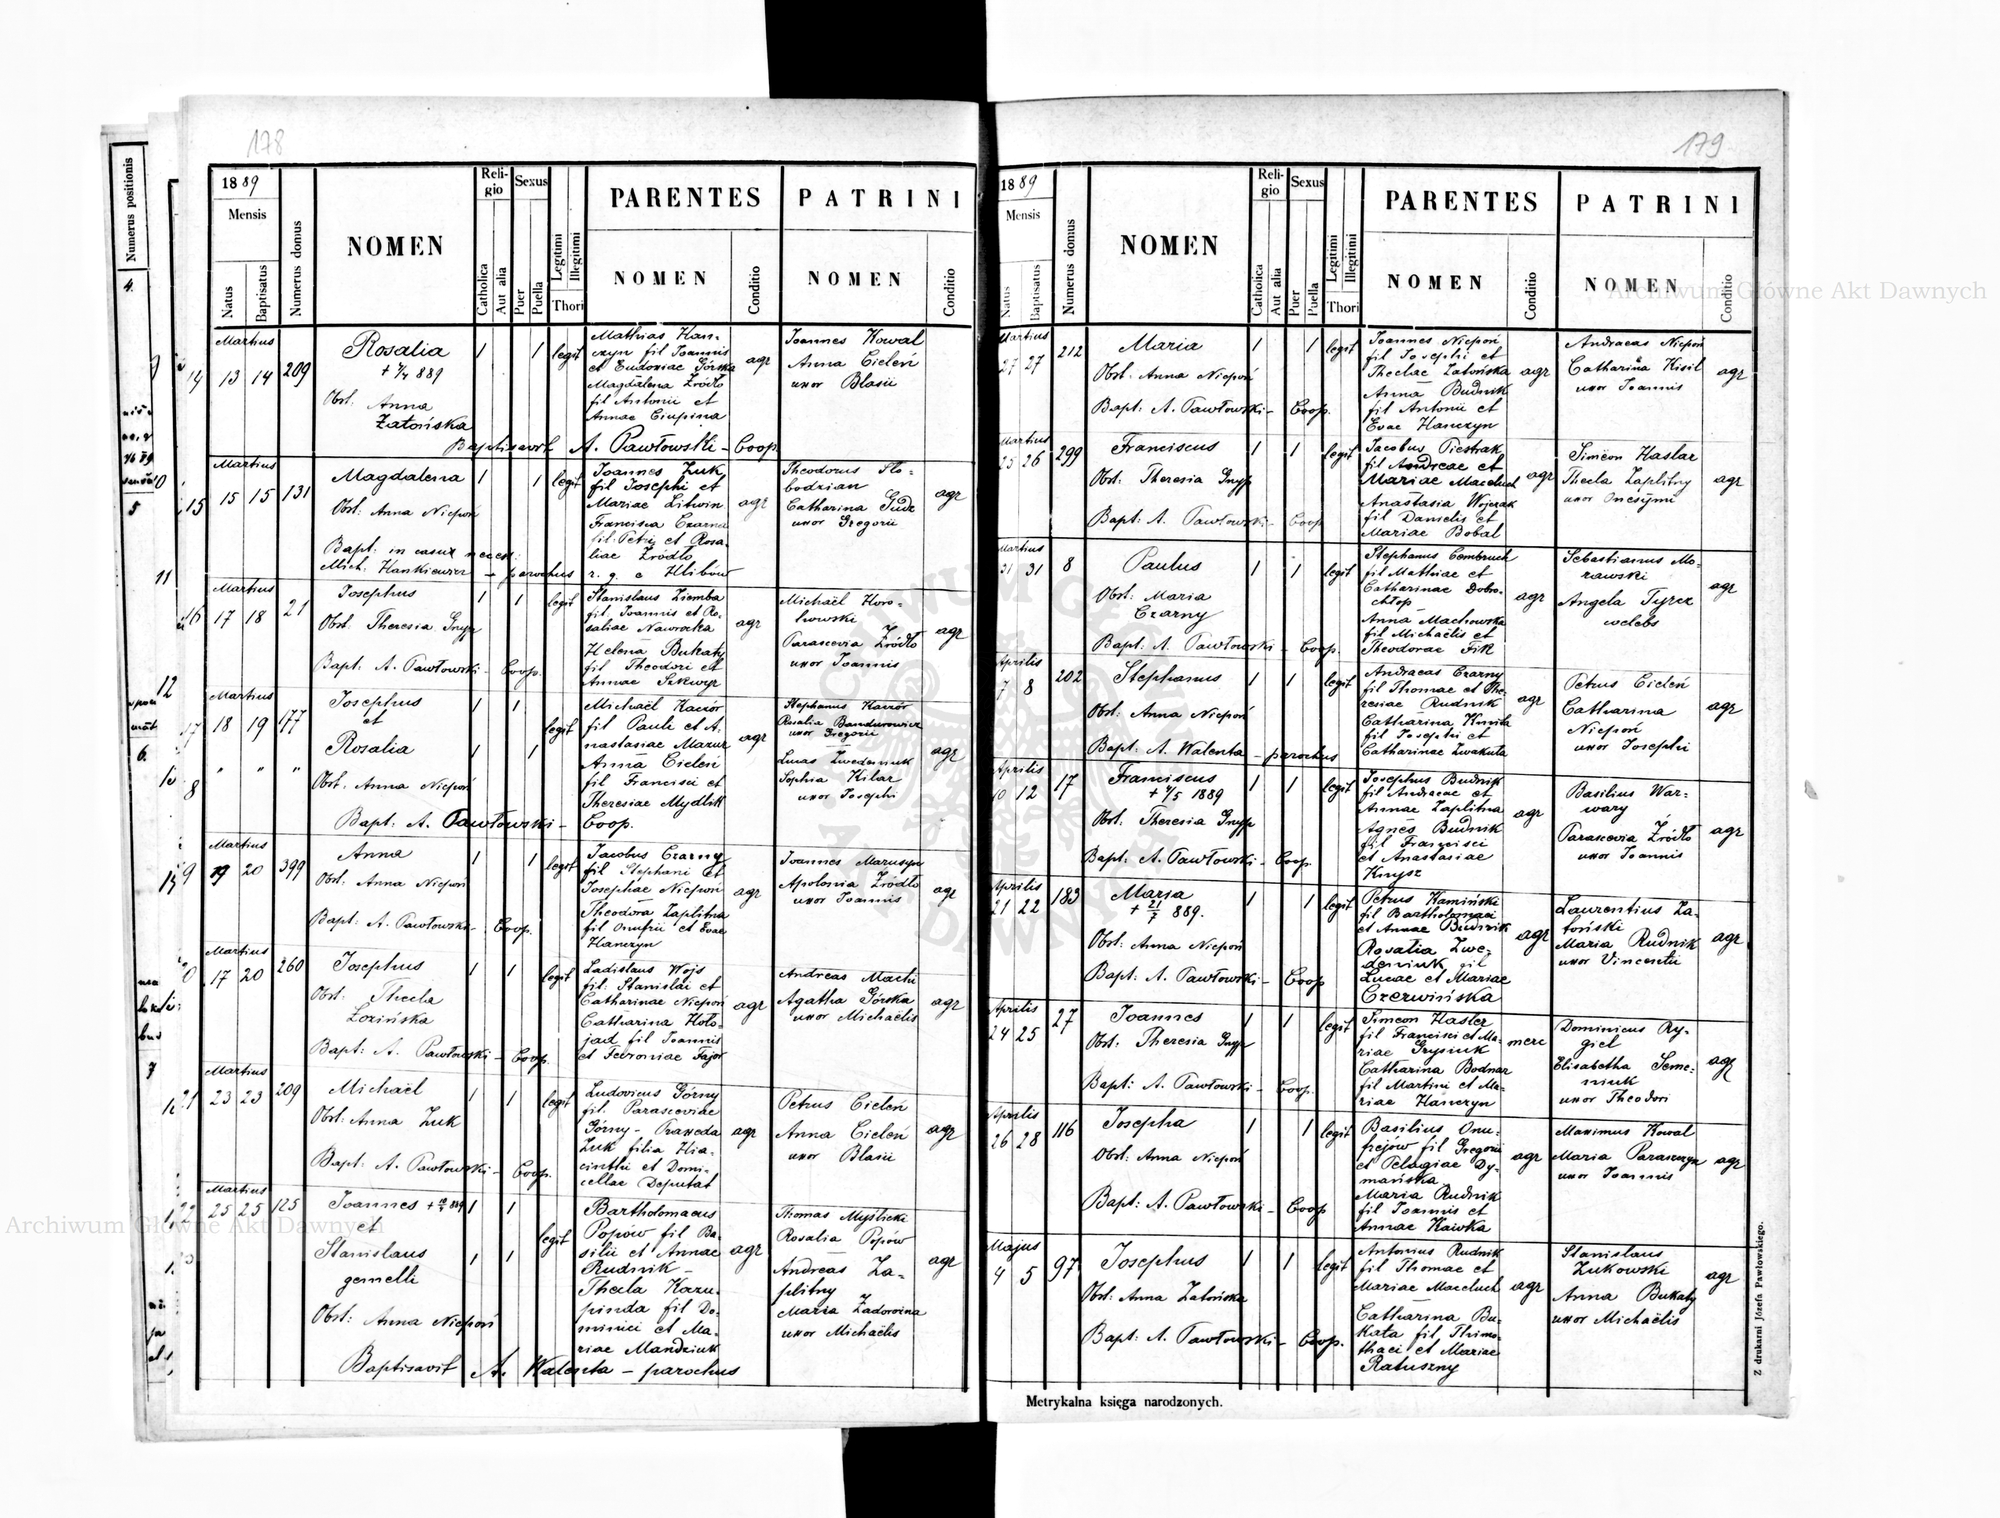 178
1889
Mensis
Natus
Baptisatus
Numerus domus
NOMEN
Religio
Catholica
Aut alia
Sexus
Puer
Puella
Legitimi
Illegitimi
Thori
PARENTES
NOMEN
Conditio
PATRINI
NOMEN
Conditio
Numerus positionis
Martius
14 13 14 209
Rosalia
Obst: Anna
Zatońska
1 1 legit
Mathias Han-
czyn fil Joannis
et Eudoxiae Górska
Magdalena Źródło
fil Antonii et
Annae Ciupina
agr
Joannes Kowal
Anna Cieleń
uxor Blasii
Baptisavit A. Pawłowski - Coop.
Martius
15 15 15 131
Magdalena
Obst: Anna Niepoń
Bapt: in casu necess:
Mich. Hankiewicz - parochus
r. g. e Hlibów
1 1 legit
Joannes Żuk
fil Josephi et
Mariae Litwin
Francisca Czarna
fil: Petri et Rosa-
liae Źródło
agr
Theodorus Sło-
bodzian
Catharina Gudz
uxor Gregorii
agr
Martius
16 17 18 21
Josephus
Obst: Theresia Gnyp
Bapt: A. Pawłowski - Coop.
1 1 legit
Stanislaus Ziemba
fil. Joannis et Ro-
saliae Nawrocka
Helena Bukaty
fil Theodori et
Annae Szkwyr
agr
Michaël Horo-
howski
Parascevia Źródło
uxor Joannis
agr
Martius
17 18 19 177
Josephus
et
Rosalia
Obst: Anna Niepoń
Bapt: A. Pawłowski - Coop.
1 1 legit
Michaël Kaczór
fil Pauli et A-
nastasiae Mazur
Anna Cieleń
fil Francisci et
Theresiae Mydlik
agr
Stephanus Kaczór
Rosalia Bandurowicz
uxor Gregorii
Lucas Zwedeniuk
Sophia Kilar
uxor Josephi
agr
Martius
19 19 20 399
Anna
Obst: Anna Niepoń
Bapt: A. Pawłowski - Coop.
1 1 legit
Jacobus Czarny
fil Stephani et
Josephae Niepoń
Theodora Zaplitna
fil Onufrii et Evae
Hanczyn
agr
Joannes Marusyn
Apolonia Źródło
uxor Joannis
agr
Martius
17 20 260
Josephus
Obst: Thecla
Łozińska
Bapt: A. Pawłowski - Coop.
1 1 legit
Ladislaus Wojs
fil: Stanislai et
Catharinae Niepoń
Catharina Hoło-
jad fil Joannis
et Febroniae Fajor
agr
Andreas Mach
Agatha Górska
uxor Michaëlis
agr
Martius
21 23 23 209
Michaël
Obst: Anna Żuk
Bapt: A. Pawłowski - Coop.
1 1 legit
Ludovicus Górny
fil. Parasceviae
Górny - Praxeda
Żuk filia Hia-
cinthi et Domi-
cellae Deputat
agr
Petrus Cieleń
Anna Cieleń
uxor Blasii
agr
Martius
25 25 125
Joannes
et
Stanislaus
gemelli
Obst: Anna Niepoń
Baptisavit A. Walenta - parochus
1 1 legit
Bartholomaeus
Popów fil Ba-
silii et Annae
Rudnik -
Thecla Kazu-
pinda fil Do-
minici et Ma-
riae Mandziuk
agr
Thomas Myślicki
Rosalia Popów
Andreas Za-
plitny
Maria Zadorożna
uxor Michaëlis
agr
179
1889
Mensis
Natus
Baptisatus
Numerus domus
NOMEN
Religio
Catholica
Aut alia
Sexus
Puer
Puella
Legitimi
Illegitimi
Thori
PARENTES
NOMEN
Conditio
PATRINI
NOMEN
Conditio
Martius
27 27 212
Maria
Obst: Anna Niepoń
Bapt: A. Pawłowski - Coop.
1 1 legit
Joannes Niepoń
fil Josephi et
Theclae Zatońska
Anna Budnik
fil Antonii et
Evae Hanczyn
agr
Andraeas Niepoń
Catharina Kisil
uxor Joannis
agr
Martius
25 26 299
Franciscus
Obst: Theresia Gnyp
Bapt: A. Pawłowski - Coop
1 1 legit
Jacobus Piestrak
fil Andreae et
Mariae Maceluch
Anastasia Wojczak
fil Danielis et
Mariae Bobal
agr
Simeon Haslar
Thecla Zaplitny
uxor Onesymi
agr
Martius
31 31 8
Paulus
Obst: Maria
Czarny
Bapt: A. Pawłowski - Coop.
1 1 legit
Stephanus Cembruch
fil Mathiae et
Catharinae Dobro-
chłop
Anna Machowska
fil Michaëlis et
Theodorae Fik
agr
Sebastianus Mo-
rawski
Angela Tyrcz
coelebs
agr
Aprilis
7 8 202
Stephanus
Obst: Anna Niepoń
Bapt: A. Walenta - parochus
1 1 legit
Andraeas Czarny
fil Thomae et The-
resiae Rudnik
Catharina Kmita
fil Josephi et
Catharinae Zwakuta
agr
Petrus Cieleń
Catharina
Niepoń
uxor Josephi
agr
Aprilis
10 12 17
Franciscus
Obst: Theresia Gnyp
Bapt: A. Pawłowski - Coop.
1 1 legit
Josephus Budnik
fil Andraeae et
Annae Zaplitna
Agnes Budnik
fil Francisci
et Anastasiae
Knysz
agr
Basilius War-
wary
Parascevia Źródło
uxor Joannis
agr
Aprilis
21 22 183
Maria
+ 21/7 889.
Obst: Anna Niepoń
Bapt: A. Pawłowski - Coop
1 1 legit
Petrus Kamiński
fil Bartholomaei
et Annae Budnik
Rosalia Zwe-
deniuk fil
Lucae et Mariae
Czerwińska
agr
Laurentius Za-
toński
Maria Rudnik
uxor Vincentii
agr
Aprilis
24 25 27
Joannes
Obst: Theresia Gnyp
Bapt: A. Pawłowski - Coop.
1 1 legit
Simeon Hasler
fil Francisci et Ma-
riae Grysiuk
Catharina Bodnar
fil Martini et Ma-
riae Hanczyn
merc
Dominicus Ry-
giel
Elisabetha Seme-
niuk
uxor Theodori
agr
Aprilis
26 28 116
Josepha
Obst: Anna Niepoń
Bapt: A. Pawłowski - Coop
1 1 legit
Basilius Onu-
frejów fil Gregorii
et Pelagiae Dy-
mańska
Maria Rudnik
fil Joannis et
Annae Kawka
agr
Maximus Kowal
Maria Parasczyn
uxor Joannis
agr
Majus
4 5 97
Josephus
Obst: Anna Zatońska
Bapt: A. Pawłowski - Coop.
1 1 legit
Antonius Rudnik
fil Thomae et
Mariae Maceluch
Catharina Bu-
kata fil Thimo-
thaei et Mariae
Ratuszny
agr
Stanislaus
Żukowski
Anna Bukaty
uxor Michaëlis
agr
Metrykalna księga narodzonych.
Z drukarni Józefa Pawłowskiego.
Archiwum Główne Akt Dawnych
Archiwum Główne Akt Dawnych